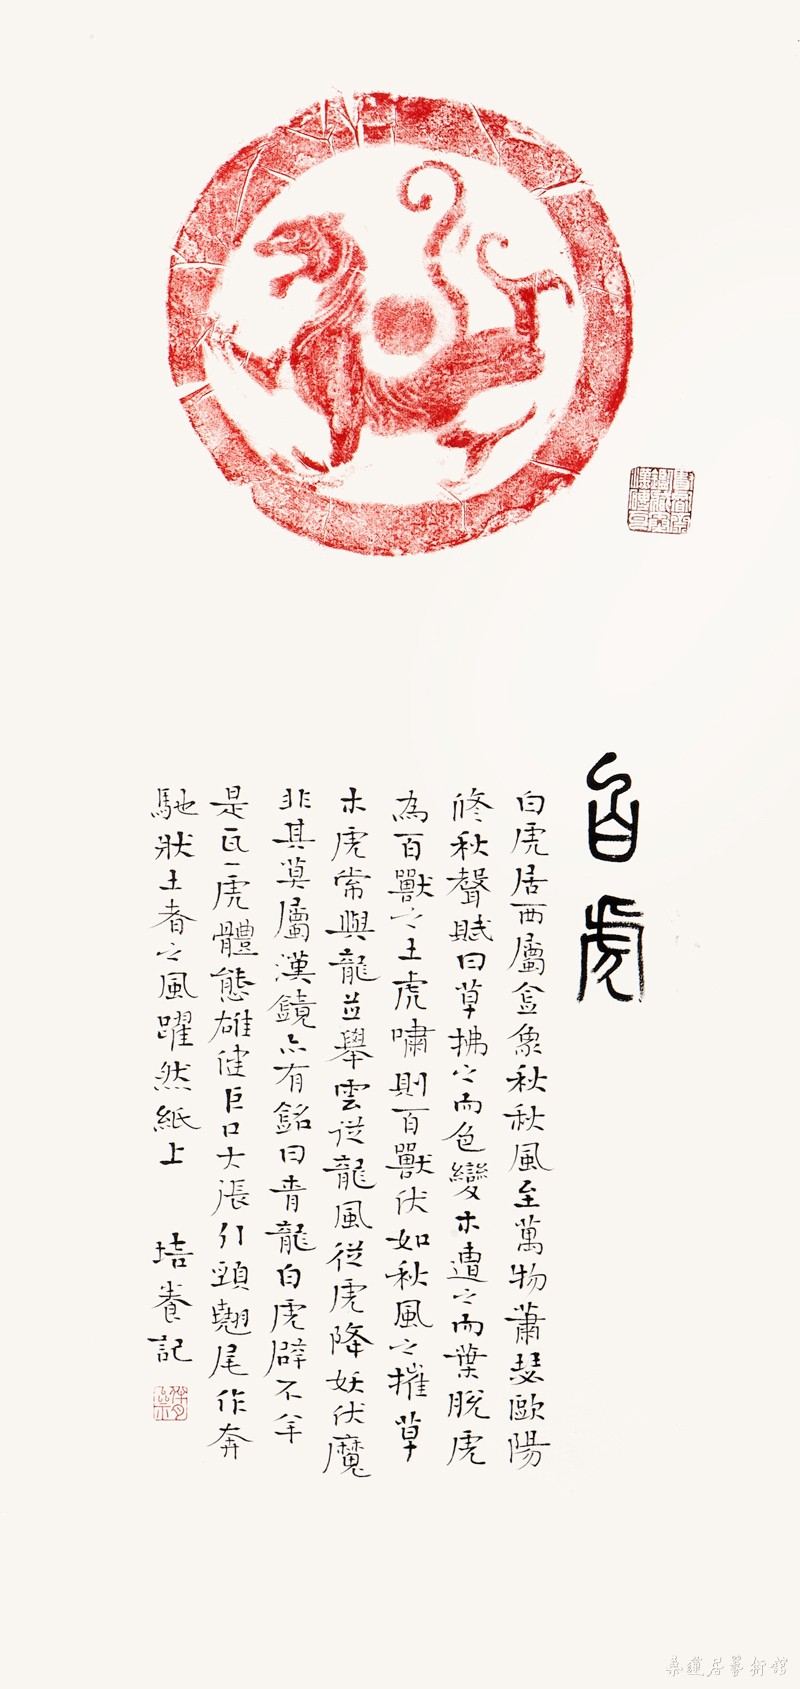 白虎
白虎居西屬金象秋秋風至萬物蕭瑟歐陽
修秋聲賦曰草拂之而色變木遭之而葉脫虎
為百獸之王虎嘯則百獸伏如秋風之摧草
木虎常與龍並舉雲從龍風從虎降妖伏魔
非其莫屬漢鏡亦有銘曰青龍白虎辟不羊
是瓦一虎體態雄健巨口大張引頸翹尾作奔
馳狀王者之風躍然紙上 培養記
桑蓮居藝術館